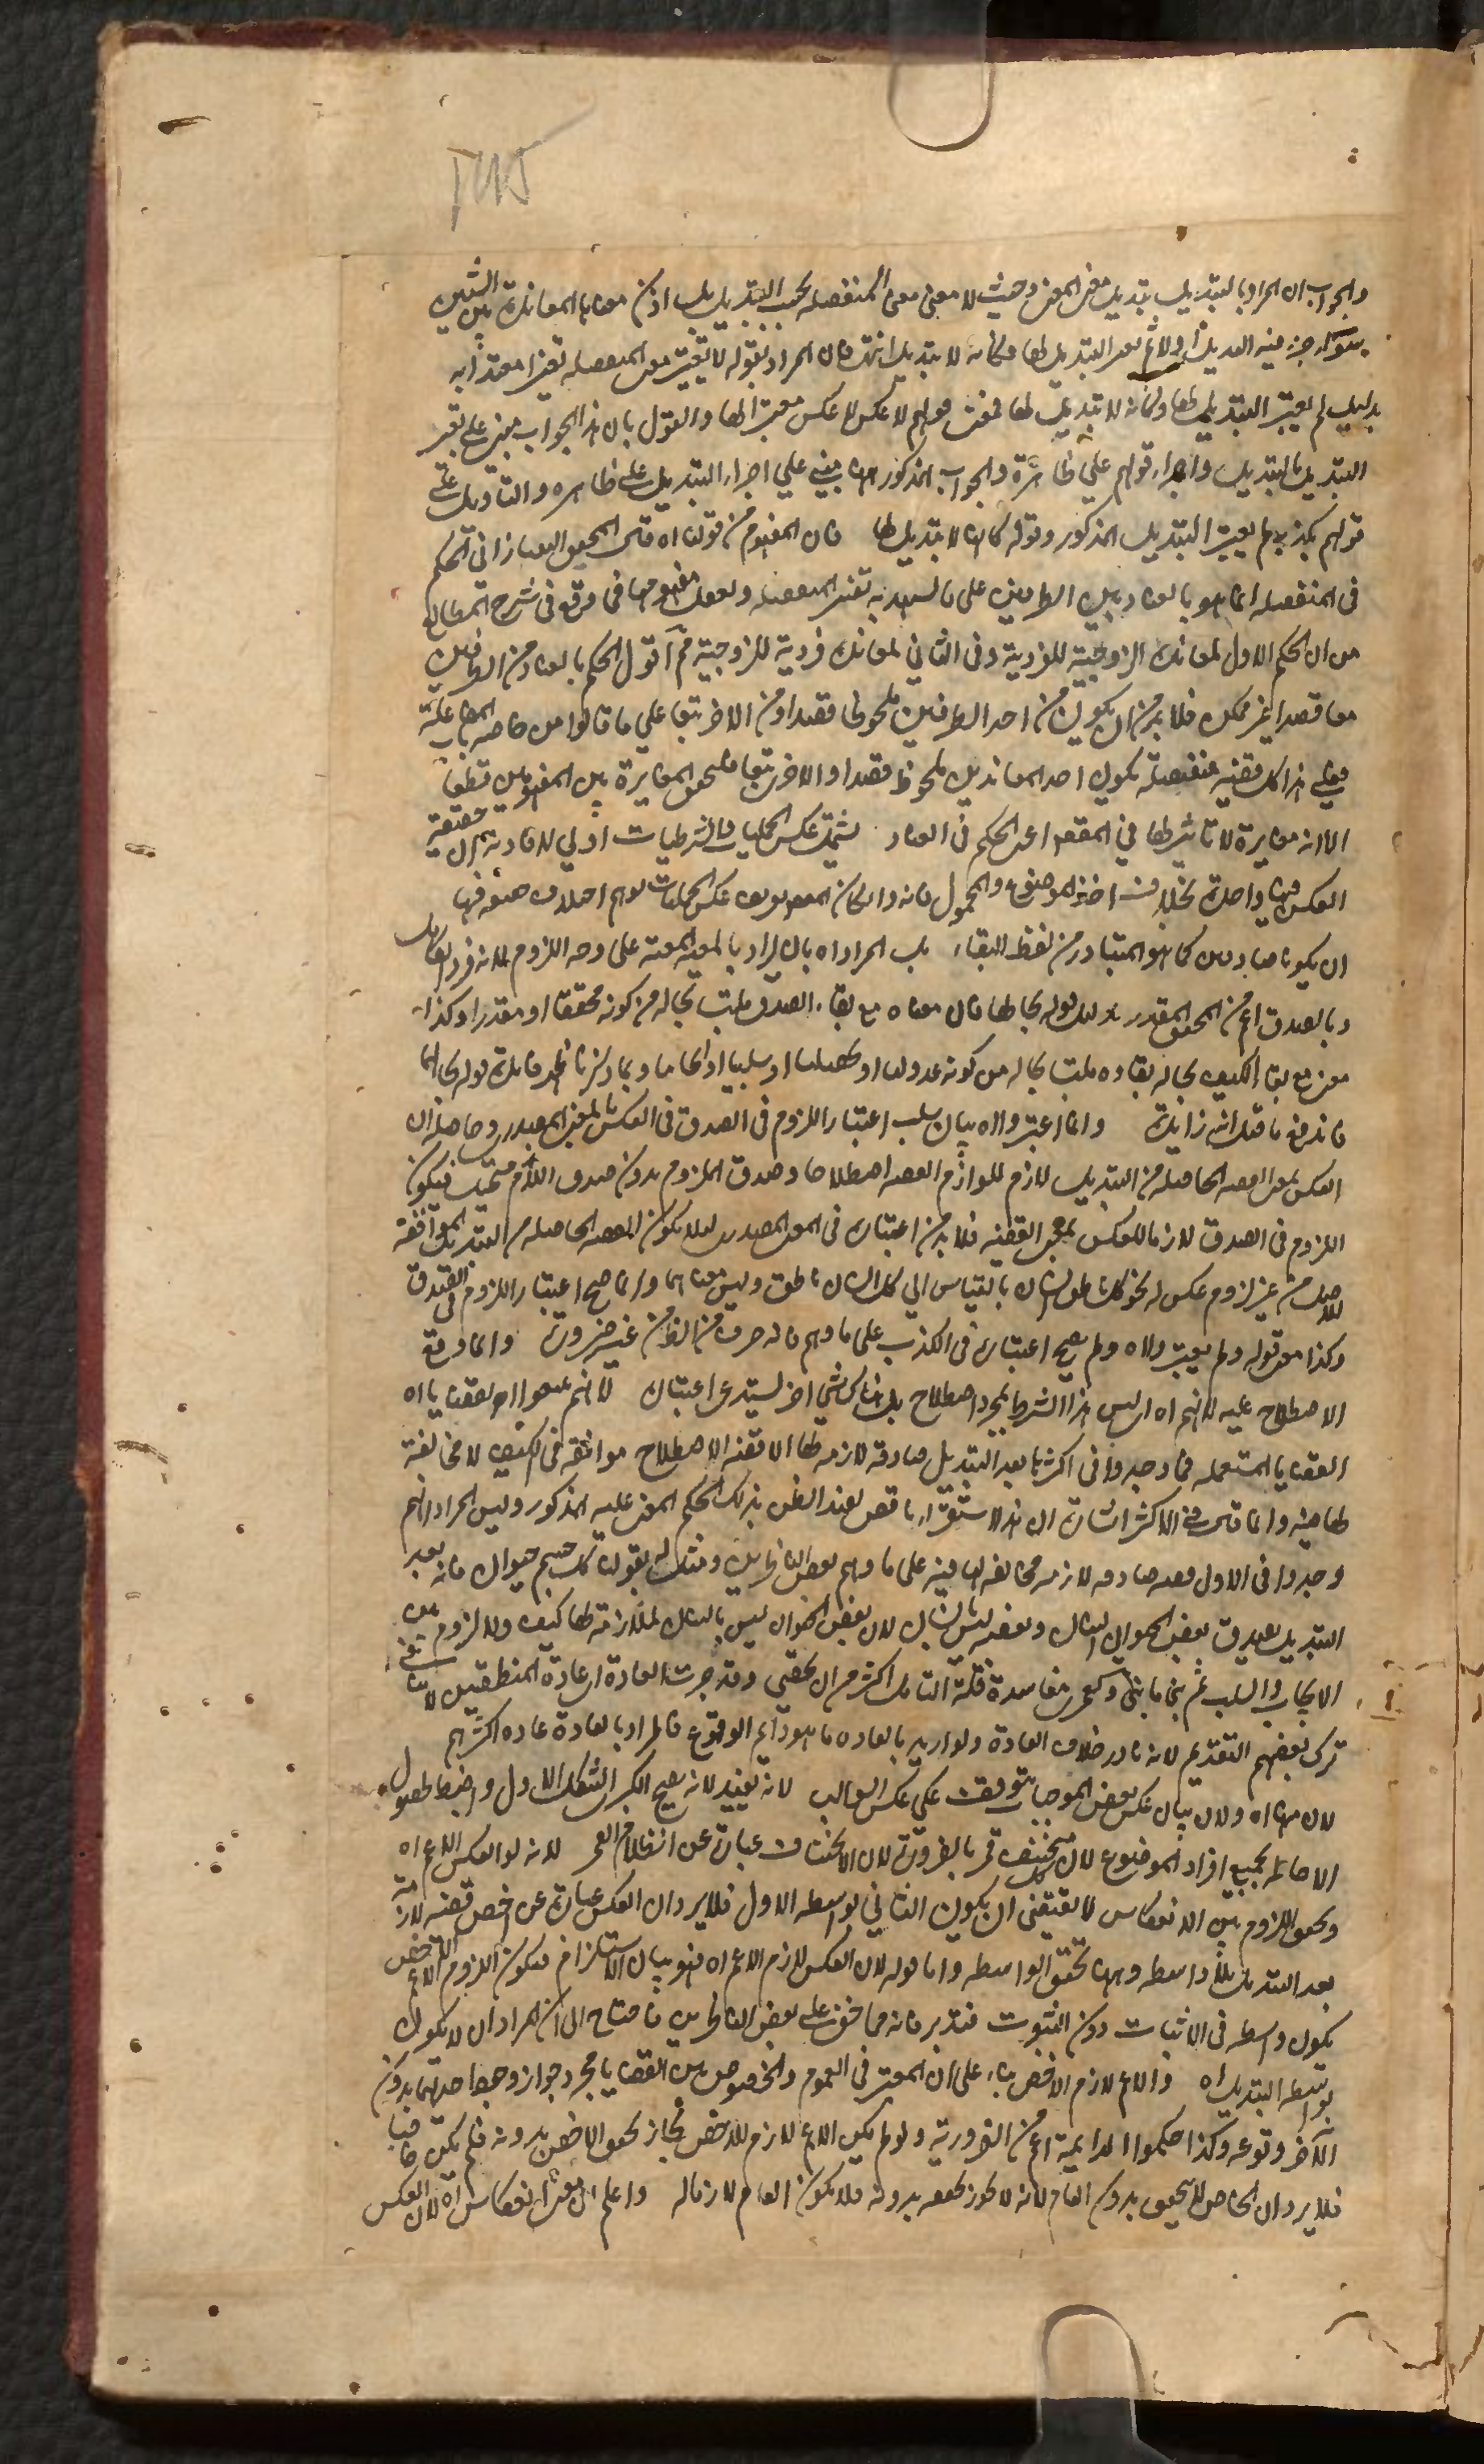 والجواب ان المراد بالتبديل تبديل مغير المعنى وحيث لا معنى معنى المنفصلة بحسب التبديل بل اذ كان معناها المعاندة بين الشيئين
سواء جرى فيه التبديل او لا لم يعتبر التبديل لها فكانه لا تبديل انتهى فان المراد بقوله لا يتغير معنى المنفصلة تغيرا معتدا به
بدليل لم يعتبر التبديل لها وكانه لا تبديل لها فمعنى قولهم لا عكس لا عكس معتبرا لها والقول بان هذا الجواب مبني على تغير
التبديل بالتبديل واجراء قولهم على ظاهره والجواب المذكور ههنا مبني على اجراء التبديل على ظاهره والتاويل على
قولهم يكذبه لم يعتبر التبديل المذكور وقوله كانه لا تبديل لها فان المفهوم من قولنا اه قال المحقق التفتازاني الحكم
في المنفصلة انما هو بالعناد بين الطرفين على ما يشهد به تفسير المنفصلة وتعقل مفهومها فما وقع في شرح المطالع
من ان الحكم الاول لمعاندة الزوجية للفردية وفي الثاني لمعاندة فردية للزوجية ثم اقول الحكم بالعناد من الطرفين
معا قصدا غير ممكن فلا بد من ان يكون من احد الطرفين ملحوظا قصدا ومن الاخر تبعا على ما قالوا من خاصة المفاعلة
فعلى هذا كل قضية منفصلة يكون احد المعاندين ملحوظ قصدا والاخر تبعا فيتحقق المغايرة بين المفهومين قطعا
الا انه مغايرة لا تاثير لها في المقصود اعني الحكم في العناد يشمل عكس الحمليات والشرطيات اولى لافادته ان حقيقة
العكس فيهما واحدة بخلاف اخذ الموضوع والمحمول فانه وان كان المقصود عكس الحمليات يوهم اختلاف حقيقته فيهما
ان يكونا صادقين كما هو المتبادر من لفظ البقاء بل المراد اه بان يراد بالمعية المعية على وجه اللزوم لانه فرد الكامل
وبالصدق اعم من المحقق والمقدر بدليل قوله بحالها فان معناه مع بقاء الصدق ملتبسا بحاله من كونه محققا او مقدرا وكذا
معنى مع بقاء الكيف بحاله بقاؤه ملتبسا بحاله من كونه عدوليا او تحصيليا او سلبيا او ايجابيا وبما ذكرنا ظهر فائدة قوله بحالها
فاندفع ما قيل انه زائدة وانما اعتبروا اه بيان سبب اعتبار اللزوم في الصدق في العكس بالمعنى المصدري وحاصله ان
العكس بمعنى القضية الحاصلة من التبديل لازم للوازم القضية اصطلاحا وصدق الملزوم بدون صدق اللازم مستحيل فيكون
اللزوم في الصدق لازما للعكس بمعنى القضية فلا بد من اعتباره في المعنى المصدري لئلا يكون القضية الحاصلة من التبديل الموافقة
للاصل من غير لزوم عكس له نحو كل ناطق انسان بالقياس الى كل انسان ناطق وليس معناهما وانما صح اعتبار اللزوم في الصدق
وكذا معنى قوله ولم يعتبر ولا اه ولم يصح اعتباره في الكذب على ما وهم فانه صرف من الظاهر من غير ضرورة وانما وقع
الاصطلاح عليه لانهم اه اي ليس هذا الشرط بمجرد اصطلاح بل هناك شيء اخر يستدعي اعتباره لانهم تتبعوا القضايا اه
القضايا المستعملة فما وجدوا في اكثرها بعد التبديل صادقة لازمة لها الا قضية الاصطلاح موافقة في الكيف لا مخالفة
لها فيه وانما قال في الاكثر اشارة الى ان هذا الاستقراء ناقص يفيد الظن بذلك الحكم المعنى عليه المذكور وليس المراد انهم
وجدوا في الاول قضية صادقة لازمة مخالفة لها فيه على ما وهم بعض الناظرين ومثل له بقولنا كل جسم حيوان فانه بعد
التبديل يصدق بعض الحيوان انسان وبعضه ليس بانسان لان بعض الحيوان ليس بانسان لملازمته لها كيف ولا لزوم بين
الايجاب والسلب ثم بنى ما بنى وكفى مفاسده قلة التامل اكثر من ان يحصى وقد جرت العادة اي عادة المنطقيين لا ينافي
ترك بعضهم التقديم لانه نادر خلاف العادة ولو اريد بالعادة ما هو دائم الوقوع فالمراد بالعادة عادة اكثرهم
لان منها اه ولان بيان عكس بعض الموجبات يتوقف على عكس السوالب لانه يفيد لانه يصح الكبرى الشكل الاول واضبط لحصول
الاحاطة لجميع افراد الموضوع لان كل منخسف قمر بالضرورة لان الانخساف عبارة عن انظلام القمر لانه لو انعكس الاعم اه
وتحقق اللزوم بين الانعكاس لا يقتضي ان يكون الثاني بواسطة الاول فلا يرد ان العكس عبارة عن اخص قضية لازمة
بعد التبديل بلا واسطة وههنا تحقق الواسطة واما قوله لان العكس لازم الاعم اه فهو بيان الاستلزام فيكون اللزوم الاعم الاخص
يكون واسطة في الاثبات دون الثبوت فتدبر فانه مما خفي على بعض الناظرين فاحتاج الى ان المراد ان لا يكون
بواسطة التبديل اه والاعم لازم الاخص بناء على ان المعتبر في العموم والخصوص بين القضايا مجرد جواز وجود احديهما بدون
الاخر وقوعه وكذا حكموا الدايمة اعم من الضرورية ولو لم يكن الاعم لازم للاخص لجاز تحقق الاخص بدونه فلم يكن خاصا
فلا يرد ان الخاص لا يتحقق بدون العام لانه لا يجوز تحققه بدونه فلا يكون العام لازما له واعلم ان معنى انعكاس اه لان العكس